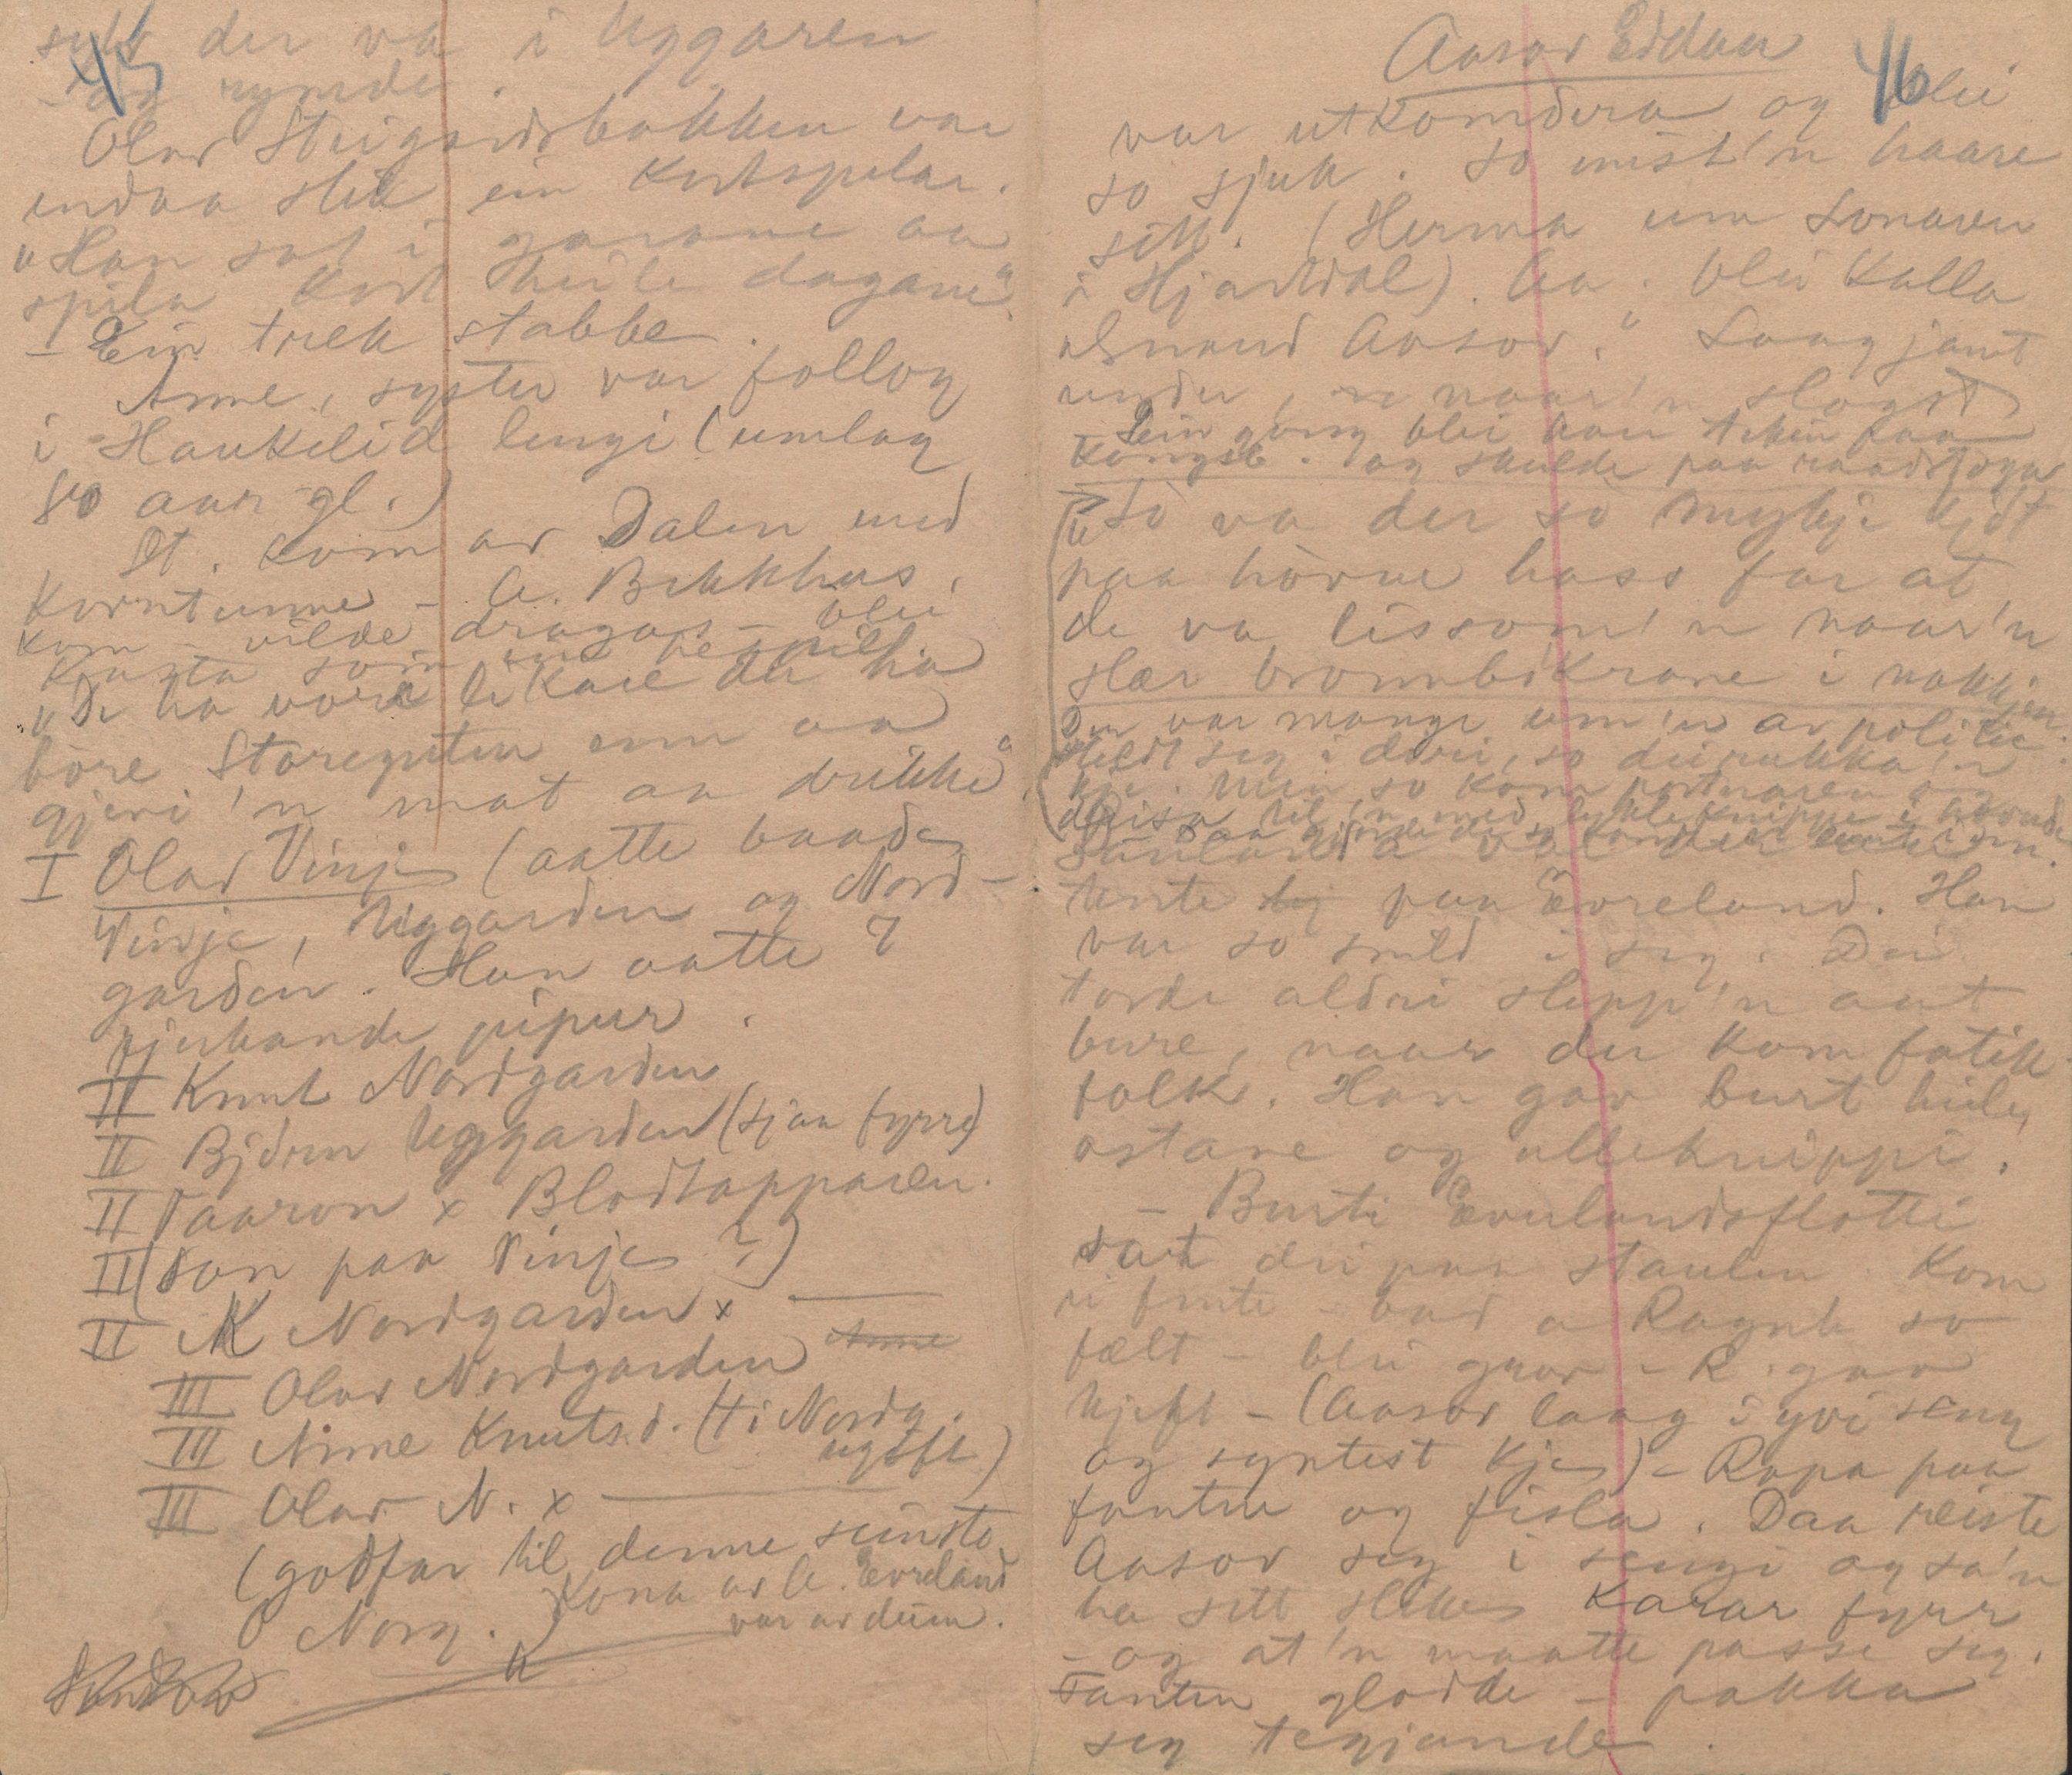 45
der va i Uggaren
og rymde.
Olav Steigardsbakken var
endaa slik ein kortspelar.
"Han sat i garane aa
spila kort heile dagane".
- Ein trek stabbe.
Anne, syster var follog
i Haukelid lengi (umlag
80 aar gl.)
St. kom av Dalen med
korntunne - A. Bekkhus,
kom - vilde dragas - blei
kasta som
"De ha vore likare du ha
bore Storeguten enn aa
gjevi'n mat aa drikke".
I Olav Vinje (aatte baade
Vinje, Uggarden og Nord-
garden. Han aatte 7
rjukande pipur.
II Knut Nordgarden
II Bjørn Uggarden (sjaa fyrre)
II Taaron x Blodtapparen.
II (son paa Vinje ?)
II K Nordgarden x
III Olav Nordgarden
III Anne Knutsd. (i Nordg.
ugift)
III Olav N. x
(godfar til denne seinste
Norg.) Kona av A. Evreland
var av deim.
46
Aasov Eddan
var utkomdera og blei
so sjuk. So mist'n haare
sitt. (Herma um Sonaren
i Hjartdal). Aa. blei kalla
Aasov." Laag jamt
under, naar'n slogst
Ein gong blei han tekin paa
Kongsb. og skulde paa raadstoga
"So va der so mykje kjøt
paa hørne hass for at
de va lissom'n naar'n
slær bronnbikrane i nakkjen.
Der var mange um'n av politie
heldt seg i døri, so dei rukka'n
kje. Men so kom portnaren og
til'n med lykleknippe i
paa Evreland. Han
var so snild i seg. Dei
torde aldri slepp'n aat
bure, naar der kom fatik
folk. Han gav burt heile
ostane og ulleknippi.
- Burti Evrelandsflotti
sat dei paa staulen. Kom
ei fante - bad a Ragnh so
fælt - blei grov - R. gav
kjeft - (Aasov laag i yvi seng
og syntest kje) - Ropa paa
fanten og fisla. Daa reiste
Aasov seg i sengi og sa'n
ha sett slike karar fyrr
- og at'n maatte passe seg.
Fanten glodde - pakka
seg tegjande.